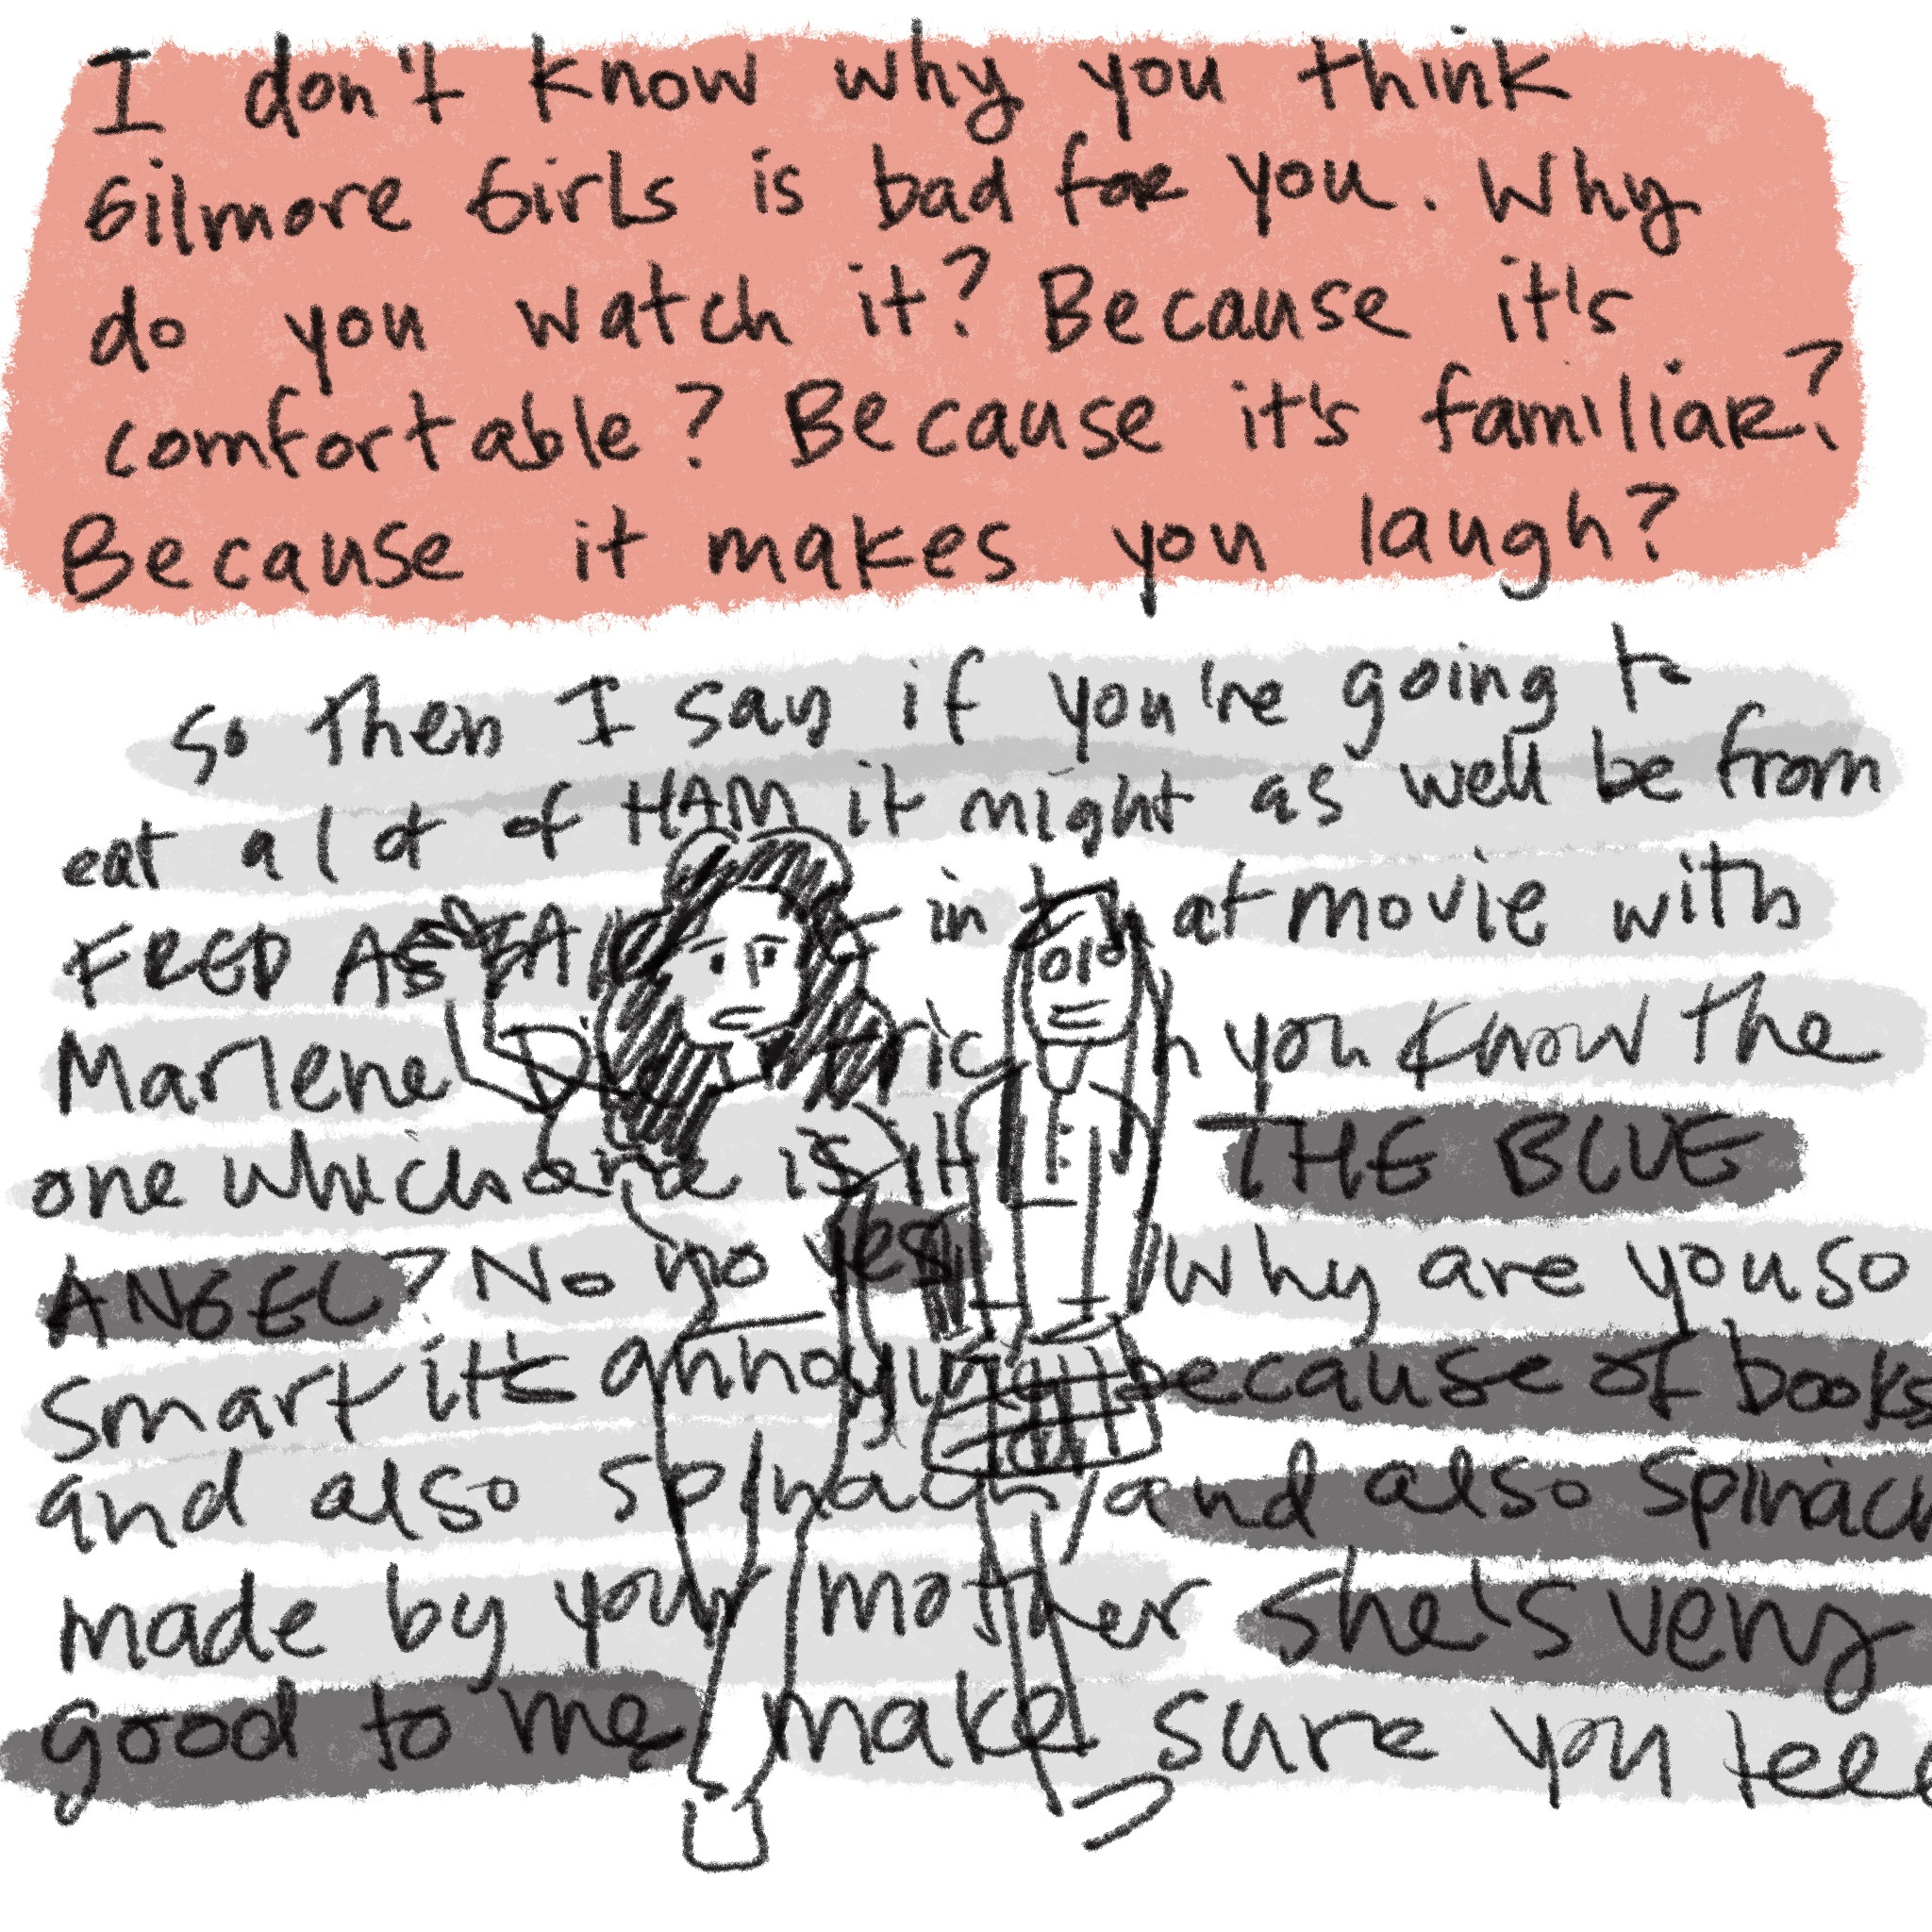 I don't know why you think
Gilmore Girls is bad for you. Why
do you watch it? Because it's
comfortable? Because it's familiar?
Because it makes you laugh?
so then I say if you're going to
eat a lot of HAM it might as well be from
FRED in that movie with
Marlene you know the
one which one is it THE BLUE
ANGEL? No no yes why are you so
smart it's annoying because of books
and also spinach and also spinach
made by your mother she's very
good to me make sure you